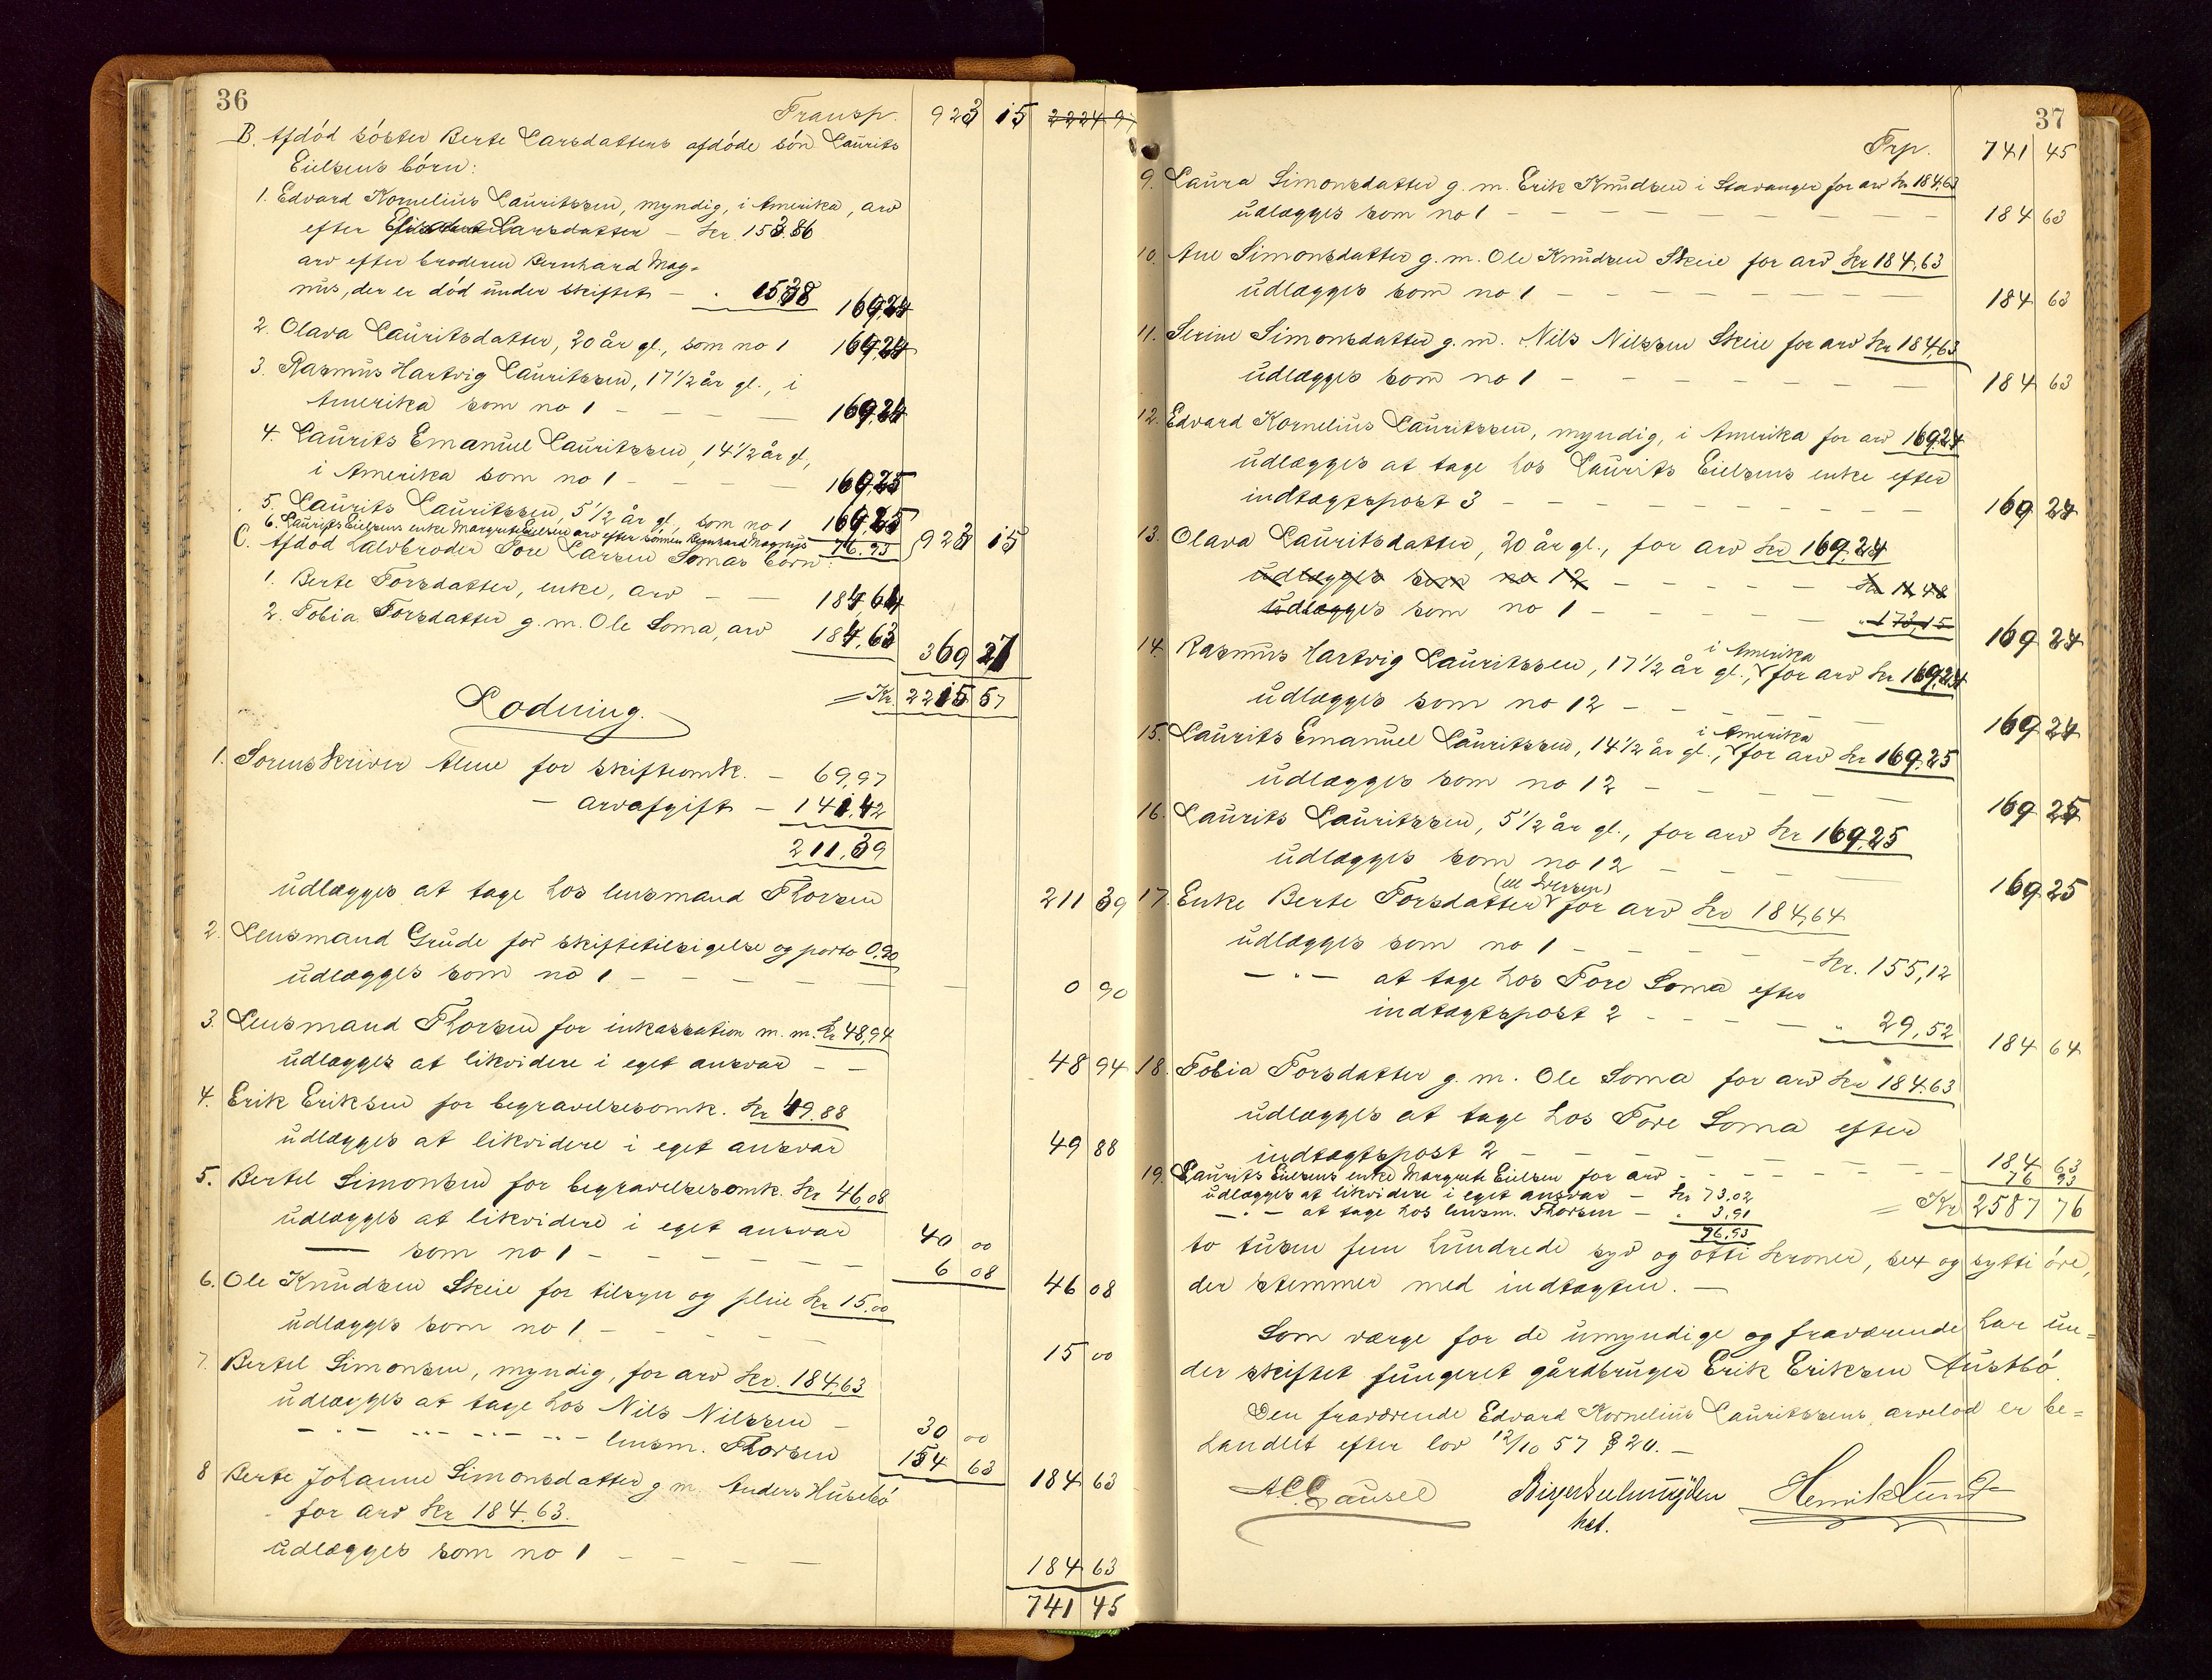 36
Transp. 923 15 2224 97
B. Afdöd söster Berte Larsdatters afdöde sön Laurits
Eielsens börn:
1. Edvard Kornelius Lauritssen, myndig, i Amerika, arv
efter Larsdatter – Kr. 153.86
arv efter broderen Bernhard Mag=
nus, der er död under skiftet – " 15.38 169,24
2. Olava Lauritsdatter, 20 år gl., som no 1 169,24
3. Rasmus Hartvig Lauritssen, 17 1/2 år gl., i
Amerika som no 1 – – – 169,24
4. Laurits Emanuel Lauritssen, 14 1/2 år gl.,
i Amerika som no 1 – – – 169,25
5. Laurits Lauritssen, 5 1/2 år gl., som no 1 169,25
6. Laurits Eielsens enke Margrete Eielsen arv efter sönnen Bernhard Magnus 76.93 923 15
C. Afdöd halvbroder Tore Larsen Somas börn:
1. Berte Torsdatter, enke, arv – – 184,64
2. Tobia Torsdatter g. m. Ole Soma, arv 184,63 369 27
= Kr. 2215 57
Lodning.
1. Sorenskriver Aune for skifteomk. – 69,97
– arvafgift – 141,42
211,39
udlægges at tage hos lensmand Thorsen 211 39
2. Lensmand Grude for skiftetilsigelse og porto 0,90
udlægges som no 1 – – – – – 0 90
3. Lensmand Thorsen for inkassation m. m. Kr 48,94
udlægges at likvidere i eget ansvar – – 48 94
4. Erik Eriksen for begravelsesomk. Kr 49.88
udlægges at likvidere i eget ansvar 49 88
5. Bertel Simonsen for begravelsesomk. Kr 46,08
udlægges at likvidere i eget ansvar 40 00
— som no 1 – – – – – 6 08 46 08
6. Ole Knudsen Skeie for tilsyn og pleie Kr 15.00
udlægges som no 1 – – – – – 15 00
7. Bertel Simonsen, myndig, for arv Kr. 184.63
udlægges at tage hos Nils Nilssen – 30 00
– " – " – " – lensm. Thorsen 154 63 184 63
8 Berte Johanne Simonsdatter g. m. Anders Husebö
for arv Kr 184.63.
udlægges som no 1 – – – – 184 63
741 45
37
Trp. 741 45
9. Laura Simonsdatter g. m. Erik Knudsen i Stavanger for arv Kr 184,63
udlægges som no 1 – – – – – – – – 184 63
10. Ane Simonsdatter g. m. Ole Knudsen Skeie for arv Kr 184,63
udlægges som no 1 – – – – – – – 184 63
11. Serine Simonsdatter g. m. Nils Nilssen Skeie for arv Kr 184,63
udlægges som no 1 – – – – – – – 184 63
12. Edvard Kornelius Lauritssen, myndig, i Amerika for arv 169.24
udlægges at tage hos Laurits Eielsens enke efter
indtægtspost 3 – – – – – – – – 169 24
13. Olava Lauritsdatter, 20 år gl., for arv Kr 169.24
udlægges som no 12 – – – – – Kr 11 48
udlægges som no 1 – – – – – " 173,15 169 24
14. Rasmus Hartvig Lauritssen, 17 1/2 år gl., i Amerika for arv Kr 169,24
udlægges som no 12 – – – – – 169 24
15. Laurits Emanuel Lauritssen, 14 1/2 år gl., i Amerika for arv Kr 169,25
udlægges som no 12 – – – – – 169 25
16. Laurits Lauritssen, 5 1/2 år gl., for arv Kr 169,25
udlægges som no 12 – – – – 169 25
17. Enke Berte Torsdatter for arv Kr 184,64
udlægges som no 1 – – – – – Kr. 155,12
– " – at tage hos Tore Soma efter
indtægtspost 2 – – – – – " 29,52 184 64
18. Tobia Torsdatter g. m. Ole Soma for arv Kr 184.63
udlægges at tage hos Tore Soma efter
indtægtspost 2 – – – – – – – – 184 63
19. Laurits Eielsens enke Margrete Eielsen for arv – – – – 76 93
udlægges at likvidere i eget ansvar – Kr 73.02
– " – at tage hos lensm. Thorsen – " 3,91 = Kr 2587 76
76,93
to tusen fem hundrede syv og otti kroner, sex og sytti öre,
der stemmer med indtægten. —
Som værge for de umyndige og fraværende har un=
der skiftet fungeret gårdbruger Erik Eriksen Austbö.
Den fraværende Edvard Kornelius Lauritssens arvelod er be=
handlet efter lov 12/10 57 § 20. —
Henrik Lund
kst.